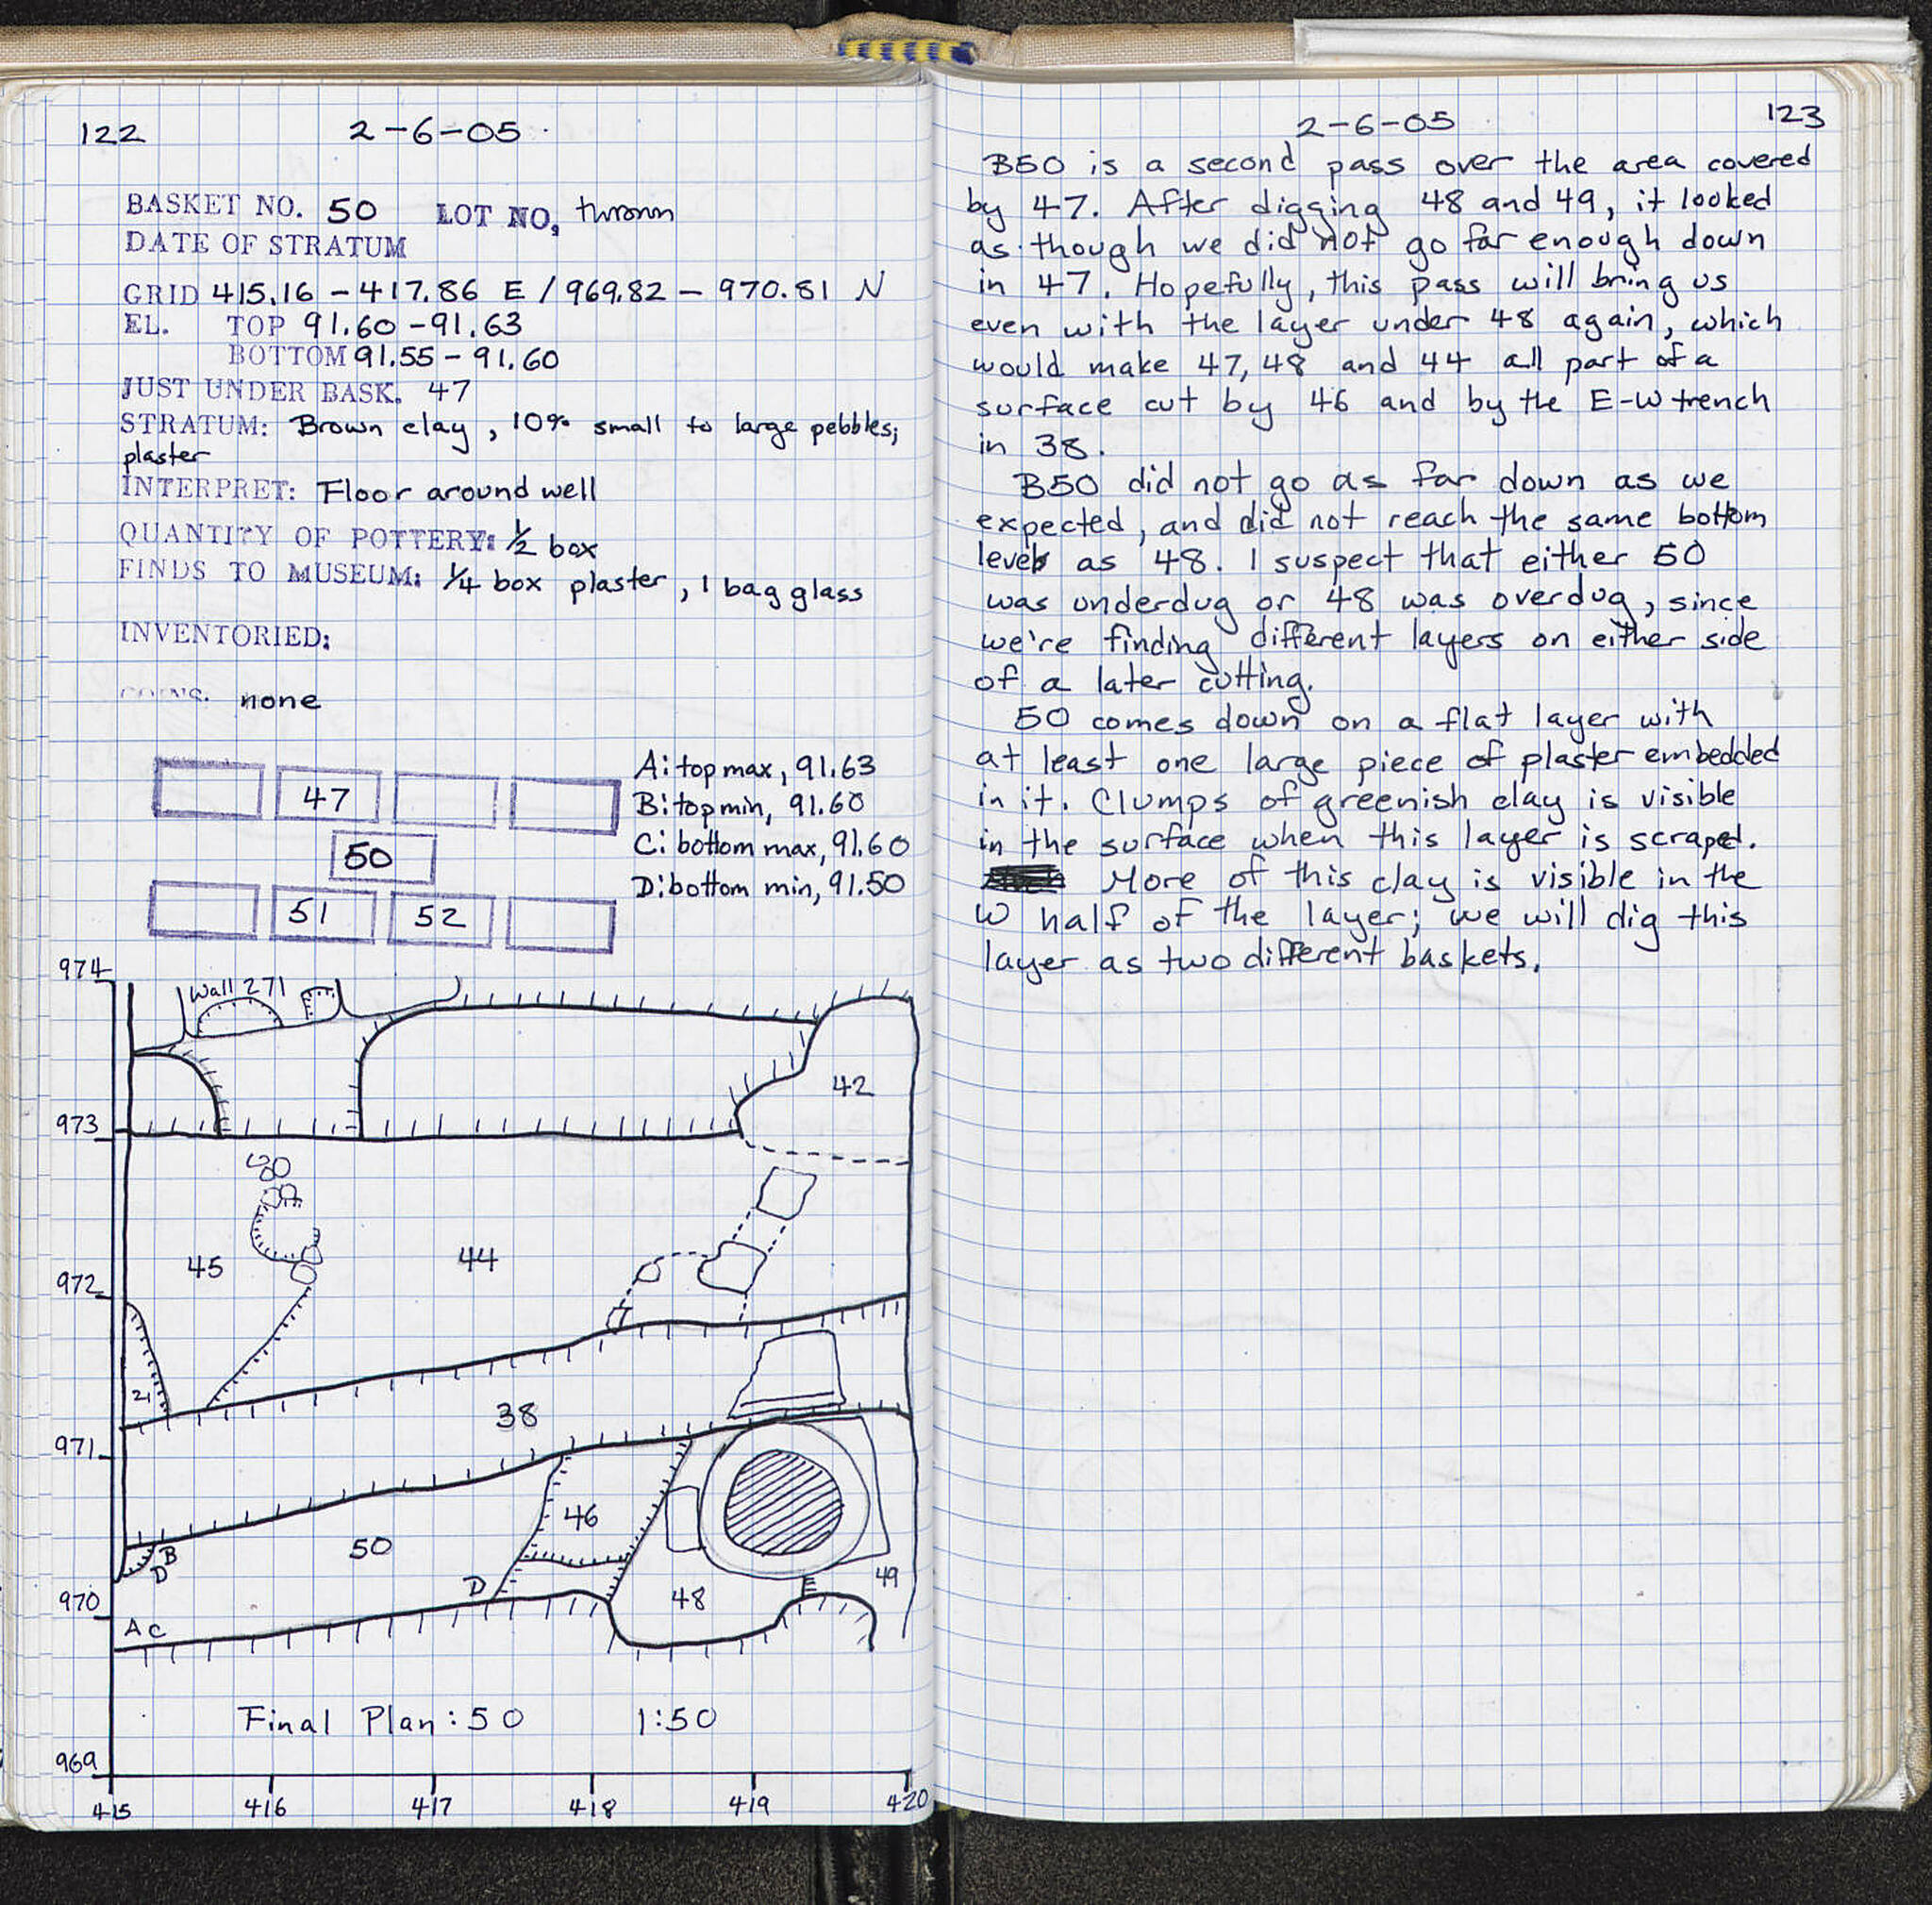 122
2-6-05
BASKET NO. 50 LOT NO, thrown
DATE OF STRATUM
GRID 415.16 - 417.86 E / 969.82 - 970.81 N
EL. TOP 91.60 - 91.63
BOTTOM 91.55 - 91.60
JUST UNDER BASK. 47
STRATUM: Brown clay, 10% small to large pebbles;
plaster
INTERPRET: Floor around well
QUANTITY OF POTTERY: 1/2 box
FINDS TO MUSEUM: 1/4 box plaster, 1 bag glass
INVENTORIED:
COINS. none
47
50
51 52
A: top max, 91.63
B: top min, 91.60
C: bottom max, 91.60
D: bottom min, 91.50
974
Wall 271
42
973
45
44
972
21
38
971
46
50
B
D
D
49
48
970
A C
Final Plan: 50 1:50
969
415 416 417 418 419 420
2-6-05
123
B50 is a second pass over the area covered
by 47. After digging 48 and 49, it looked
as though we did not go far enough down
in 47. Hopefully, this pass will bring us
even with the layer under 48 again, which
would make 47, 48 and 44 all part of a
surface cut by 46 and by the E-W trench
in 38.
B50 did not go as far down as we
expected, and did not reach the same bottom
levels as 48. I suspect that either 50
was underdug or 48 was overdug, since
we're finding different layers on either side
of a later cutting.
50 comes down on a flat layer with
at least one large piece of plaster embedded
in it. Clumps of greenish clay is visible
in the surface when this layer is scraped.
More of this clay is visible in the
W half of the layer; we will dig this
layer as two different baskets.